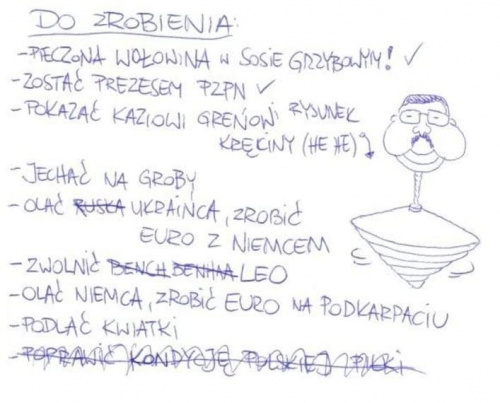 DO ZROBIENIA:
- PIECZONA WOŁOWINA W SOSIE GRZYBOWYM! ✓
- ZOSTAĆ PREZESEM PZPN ✓
- POKAZAĆ KAZIOWI GREŃOWI RYSUNEK
KRĘCINY (HE HE)
- JECHAĆ NA GROBY
- OLAĆ RUSKA UKRAIŃCA, ZROBIĆ
EURO Z NIEMCEM
- ZWOLNIĆ BENCH BENHAA LEO
- OLAĆ NIEMCA, ZROBIĆ EURO NA PODKARPACIU
- PODLAĆ KWIATKI
- POPRAWIĆ KONDYCJĘ POLSKIEJ PIŁKI